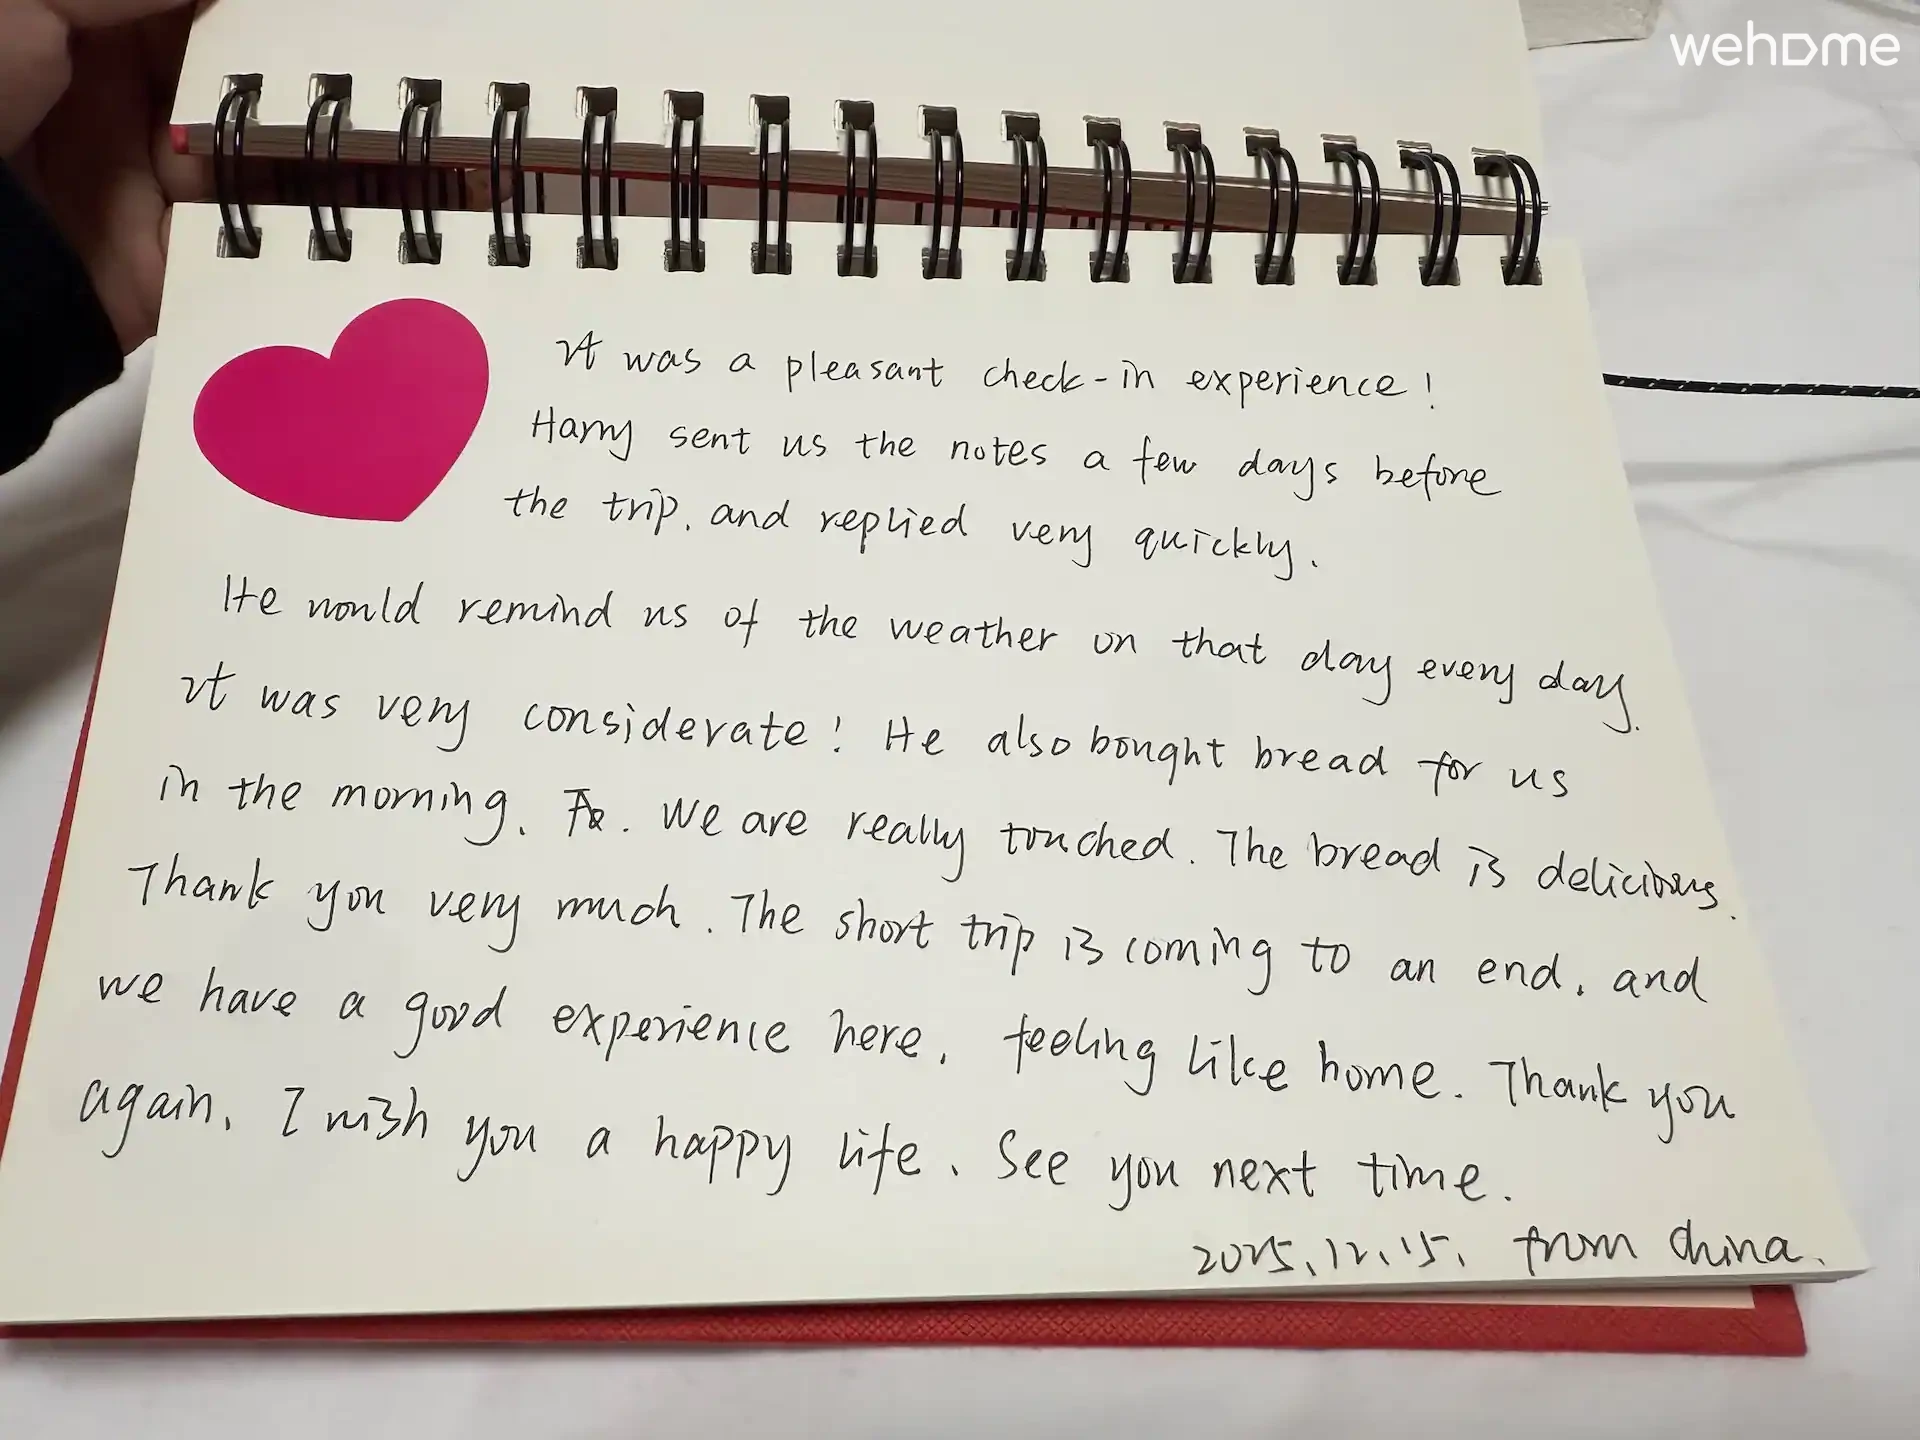 wehome
It was a pleasant check-in experience!
Harry sent us the notes a few days before
the trip, and replied very quickly.
He would remind us of the weather on that day every day.
It was very considerate! He also bought bread for us
in the morning. We are really touched. The bread is delicious.
Thank you very much. The short trip is coming to an end, and
we have a good experience here, feeling like home. Thank you
again. I wish you a happy life. See you next time.
2025.12.15. from China.